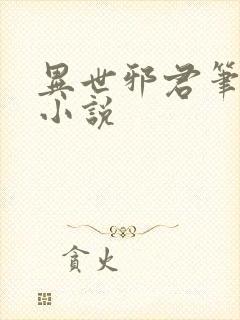 異世邪君筆
小說
貪火